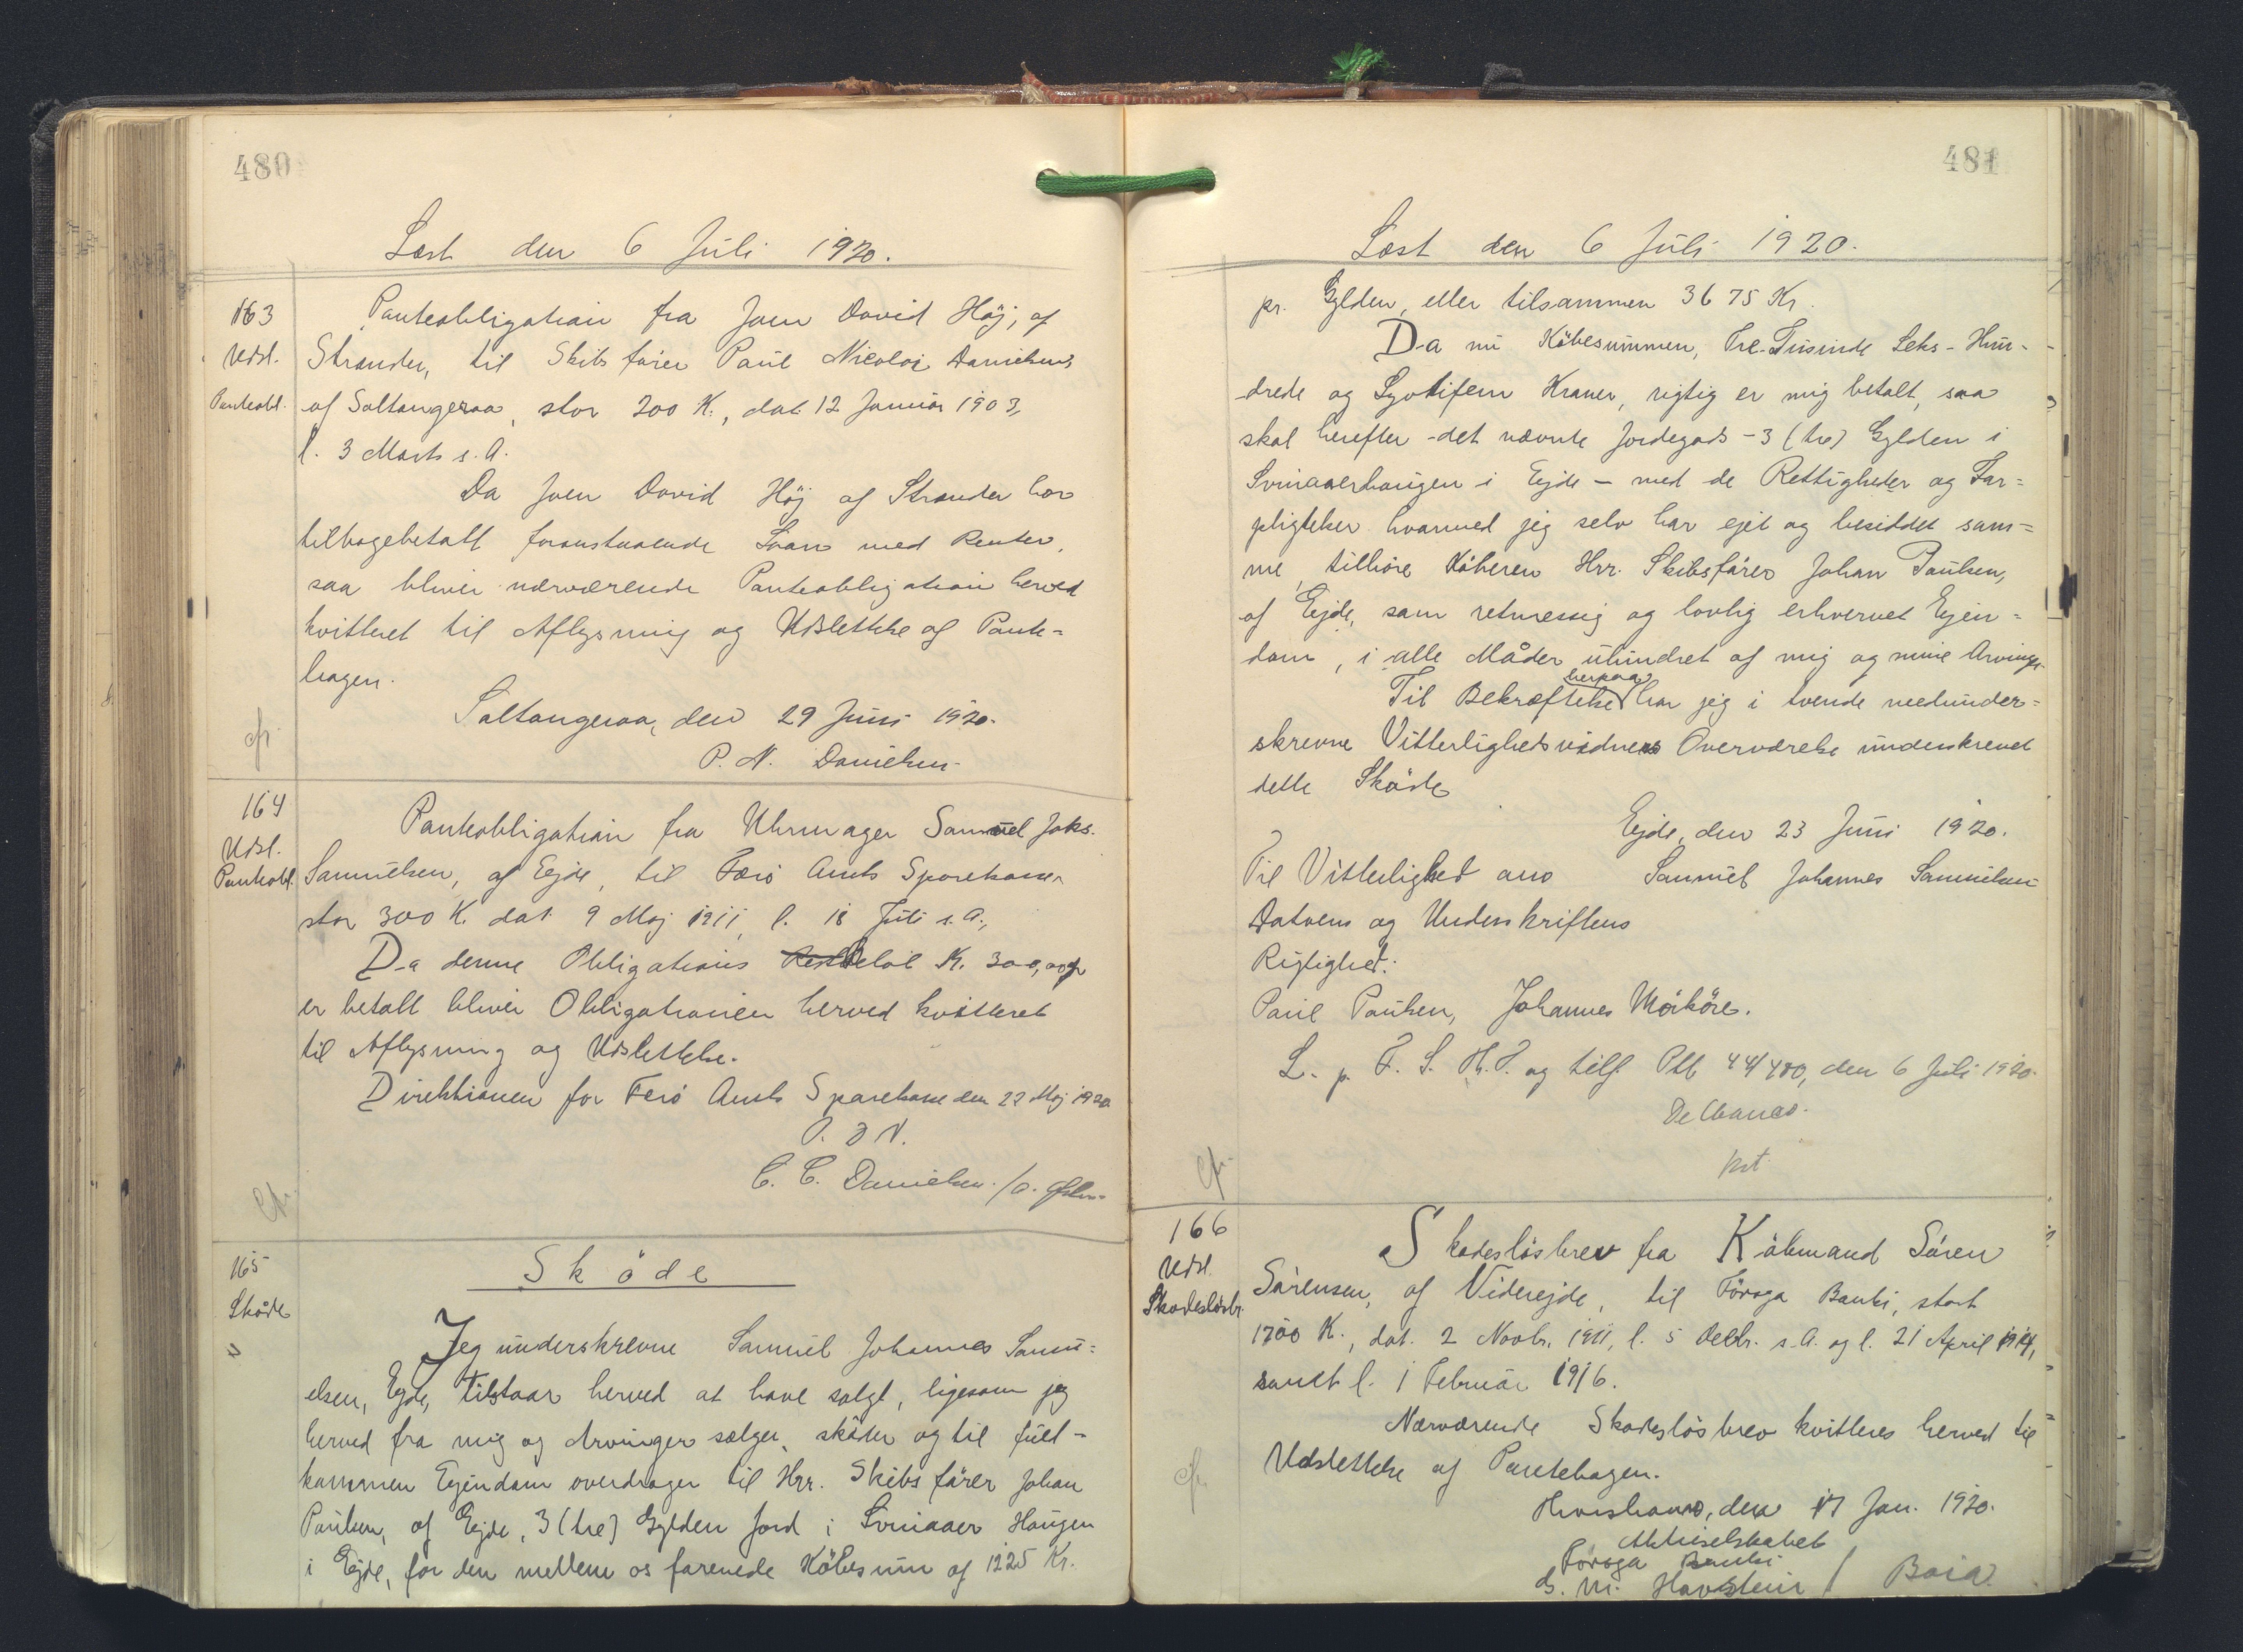 480
Læst den 6 Juli 1920.
163
Udsl.
Panteobl.
Panteobligation fra Joen David Höj, af
Strænder, til Skibsfører Paul Nicolai Danielsen,
af Saltangeraa, stor 200 K., dat. 12 Januar 1903,
l. 3 Marts s. A.
Da Joen David Höj af Strænder har
tilbagebetalt foranstaaende Laan med Renter,
saa bliver nærværende Panteobligation herved
kvitteret til Aflysning og Udslettelse af Pante-
bogen.
Saltangeraa, den 29 Juni 1920.
P. N. Danielsen
cfr.
164
Udsl.
Panteobl.
Panteobligation fra Uhrmager Samuel Johs.
Samuelsen, af Ejde, til Færø Amts Sparekasse
stor 300 K. dat. 9 Maj 1911, l. 18 Juli s. A.,
Da denne Obligations Beløb K. 300,00
er betalt bliver Obligationen herved kvitteret
til Aflysning og Udslettelse.
Direktionen for Færø Amts Sparekasse den 22 Maj 1920
C. C. Danielsen /
cfr.
165
Sköde
Sköde
Jeg underskrevne Samuel Johannes Samu-
elsen, Ejde, tilstaar herved at have solgt, ligesom jeg
herved fra mig og Arvinger sælger, sköder og til fuld-
kommen Ejendom overdrager til Hrr. Skibsförer Johan
Paulsen, af Ejde, 3 (tre) Gylden Jord i Svinaaer Haugen
i Ejde, for den mellem os forenede Köbesum af 1225 Kr.
481
Læst den 6 Juli 1920.
pr. Gylden, eller tilsammen 3675 Kr.
Da nu Köbesummen, Tre-Tusinde Seks-Hun-
drede og Syvtifem Kroner, rigtig er mig betalt, saa
skal herefter det nævnte Jordegods - 3 (tre) Gylden i
Svinaaerhaugen i Ejde - med de Rettigheder og For-
pligtelser hvormed jeg selv har ejet og besiddet sam-
me, tilhöre Köberen Hrr. Skibsförer Johan Paulsen,
af Ejde, som retmessig og lovlig erhvervet Ejen-
dom, i alle Måder uhindret af mig og mine Arvinger.
herpaa
Til Bekræftelse har jeg i tvende medunder-
skrevne Vitterlighedsvidners Overværelse underskrevet
dette Sköde
Ejde, den 23 Juni 1920.
Til Vitterlighed om Samuel Johannes Samuelsen
Datoens og Underskriftens
Rigtighed:
Paul Paulsen, Johannes Mörköre.
L. p. F. S. Th. T. og tilf. Ptb 44/480, den 6 Juli 1920.
Delbanco.
kst.
cfr.
166
Udsl.
Skadeslösbr.
Skadeslösbrev fra Köbmand Sören
Sörensen, af Viderejde, til Föroya Banki, stort
1700 K., dat. 2 Novbr. 1911, l. 5 Decbr. s. A. og l. 21 April 1914,
samt l. 1 Februar 1916.
Nærværende Skadeslösbrev kvitteres herved til
Udslettelse af Pantebogen.
Thorshavn, den 17 Jan. 1920.
Aktieselskabet
Föroya Banki
Havsteen /
cfr.